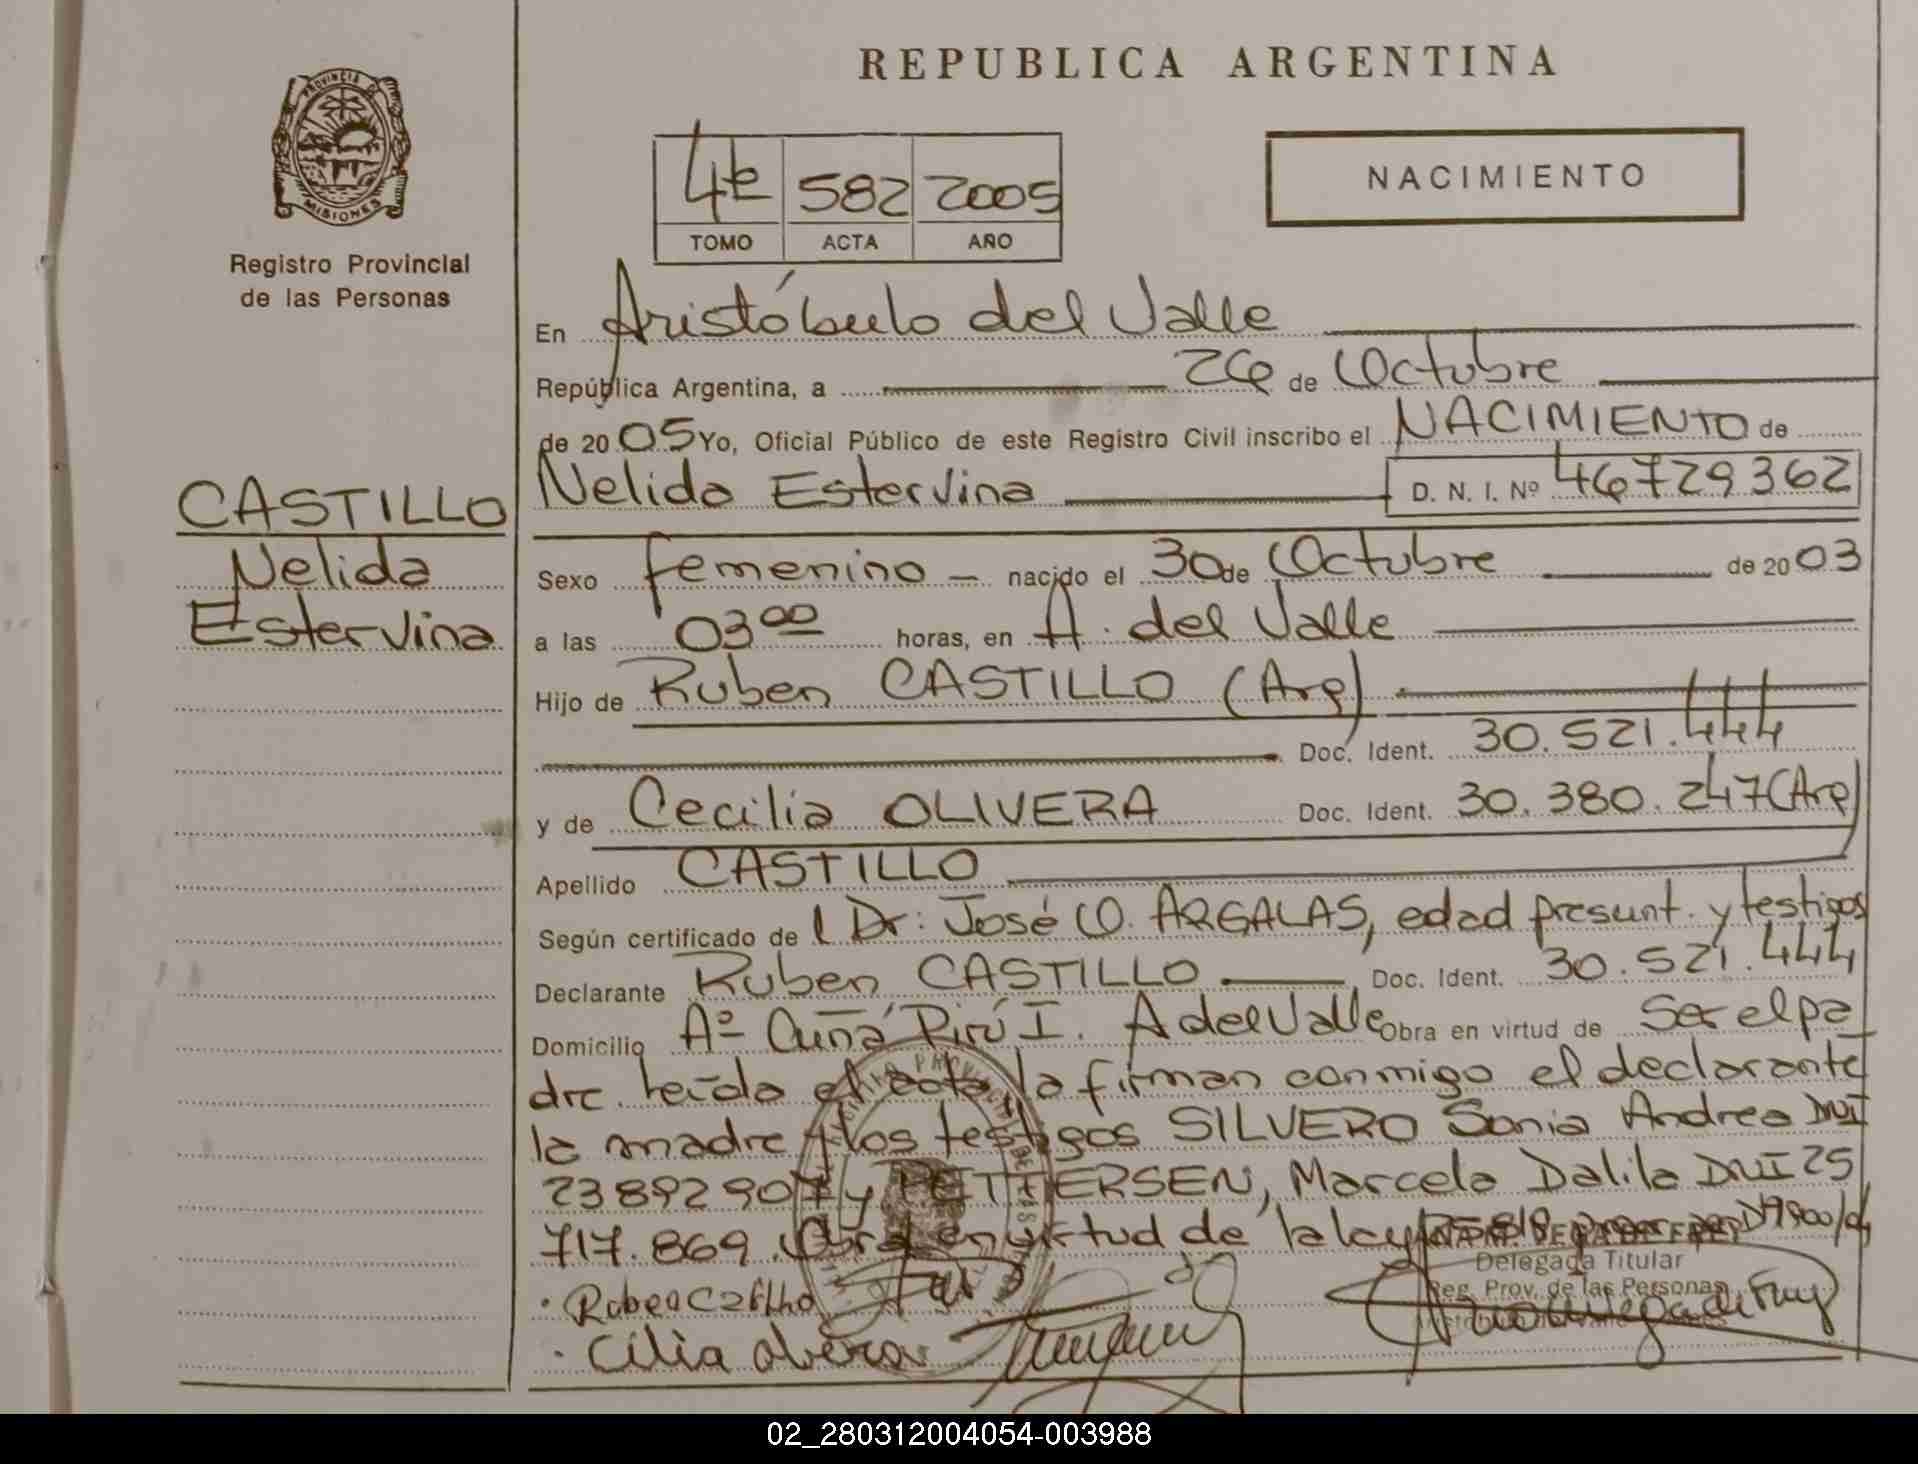 REPUBLICA ARGENTINA
PROVINCIA DE
MISIONES
Registro Provincial
de las Personas
4t 582 2005
TOMO ACTA AÑO
NACIMIENTO
En Aristóbulo del Valle
República Argentina, a 26 de Octubre
de 20 05 Yo, Oficial Público de este Registro Civil inscribo el NACIMIENTO de
Nelida Estervina D. N. I. Nº 46729362
CASTILLO
Nelida
Estervina
Sexo femenino nacido el 30 de Octubre de 20 03
a las 03 00 horas, en A. del Valle
Hijo de Ruben CASTILLO (Arg)
Doc. Ident. 30.521.444
y de Cecilia OLIVERA Doc. Ident. 30.380.247 (Arg)
Apellido CASTILLO
Según certificado de l Dr: José O. ARGALAS, edad presunt. y testigos
Declarante Ruben CASTILLO Doc. Ident. 30.521.444
Domicilio Aº Cuñá Pirú I. A del Valle Obra en virtud de Ser el pa
dre. Leída el acta, la firman conmigo el declarante
la madre y los testigos SILVERO Sonia Andrea DNI
23892907 y PETTERSEN, Marcela Dalila DNI 25
717.869. Obra en virtud de la ley
Delegada Titular
Reg. Prov. de las Personas
02_280312004054-003988